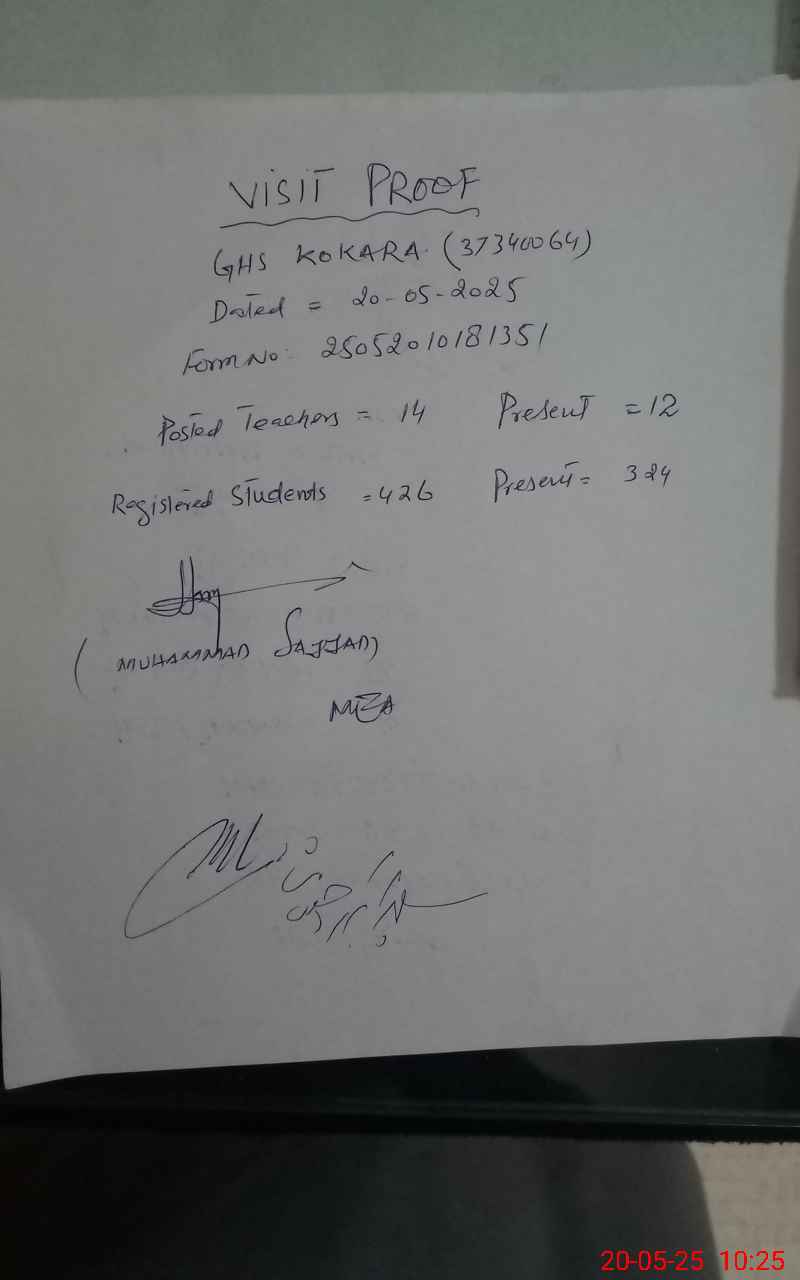 VISIT PROOF
GHS KOKARA. (37340064)
Dated = 20-05-2025
Form No: 25052010181351
Posted Teachers = 14 Present = 12
Registered Students = 426 Present = 324
(MUHAMMAD SAJJAD)
MEA
20-05-25 10:25